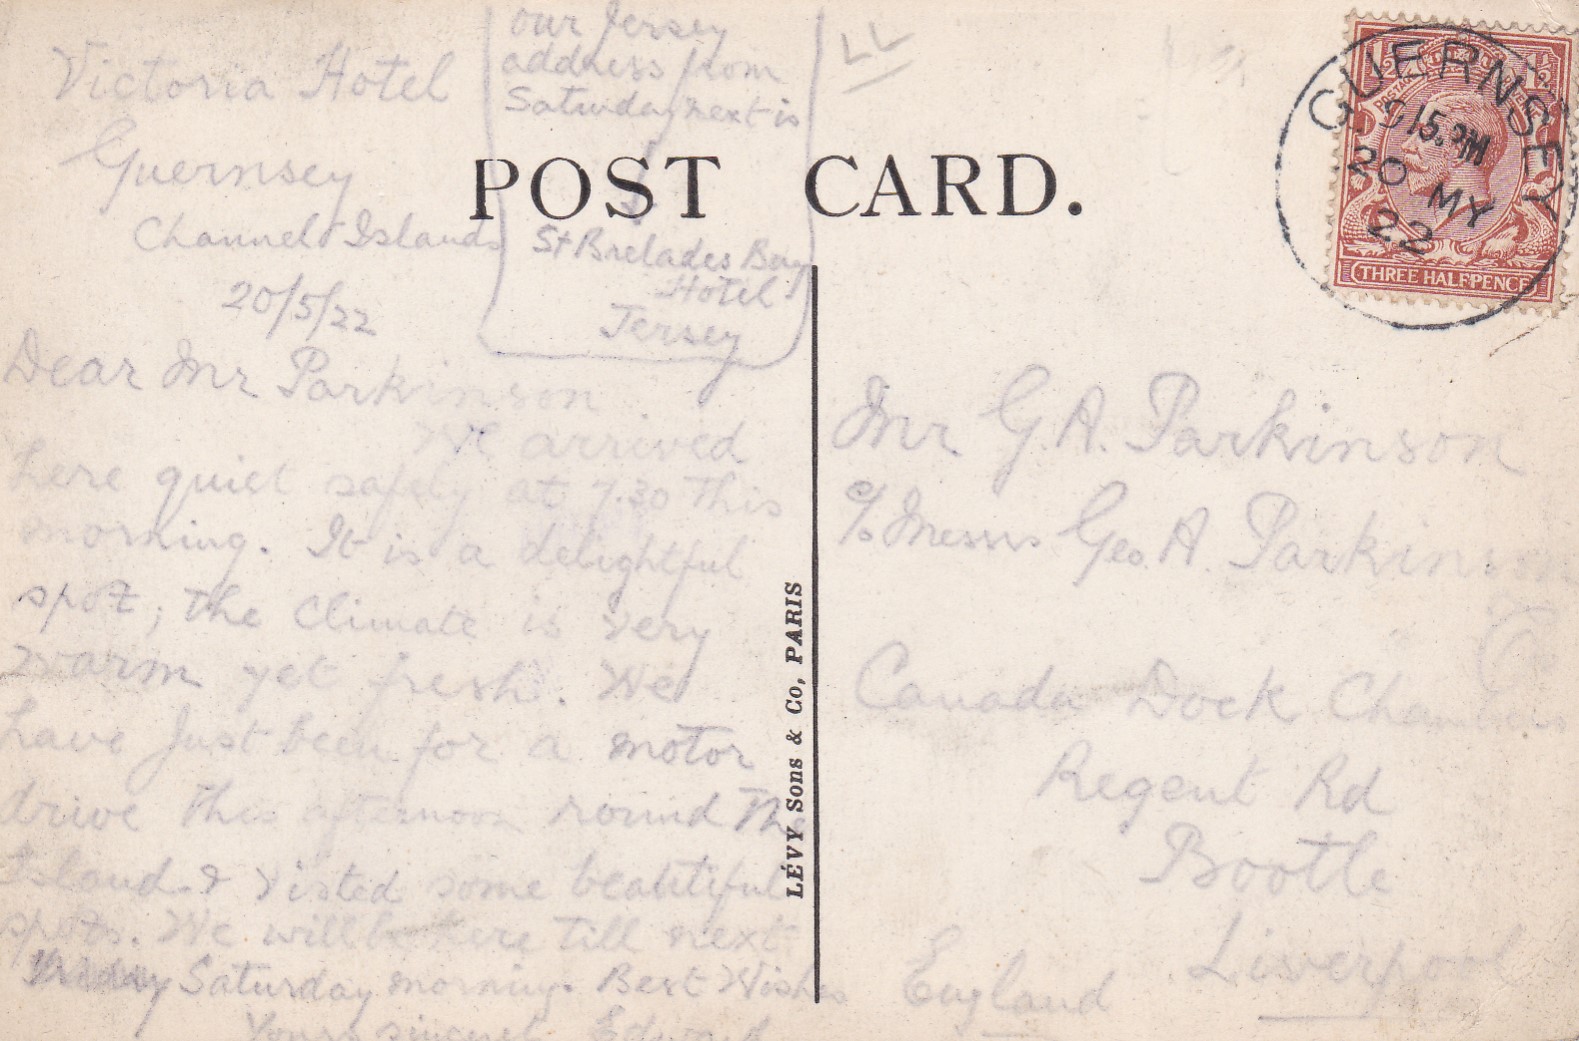 Victoria Hotel
Guernsey
Channel Islands
20/5/22
our Jersey
address from
Saturday next is
St Brelades Bay
Hotel
Jersey
POST CARD.
Dear Mr Parkinson
We arrived
here quiet safely at 7.30 this
morning. It is a delightful
spot, the climate is very
warm yet fresh. We
have just been for a motor
drive this afternoon round the
Island & visted some beautiful
spots. We will be here till next
Saturday morning. Best Wishes
Yours Edward
LÉVY Sons & Co, PARIS
GUERNSEY
5. PM
20 MY
22
THREE HALFPENCE
Mr G. A. Parkinson
c/o Messrs Geo. A Parkinson
Canada Dock Chambers
Regent Rd
Bootle
Liverpool
England